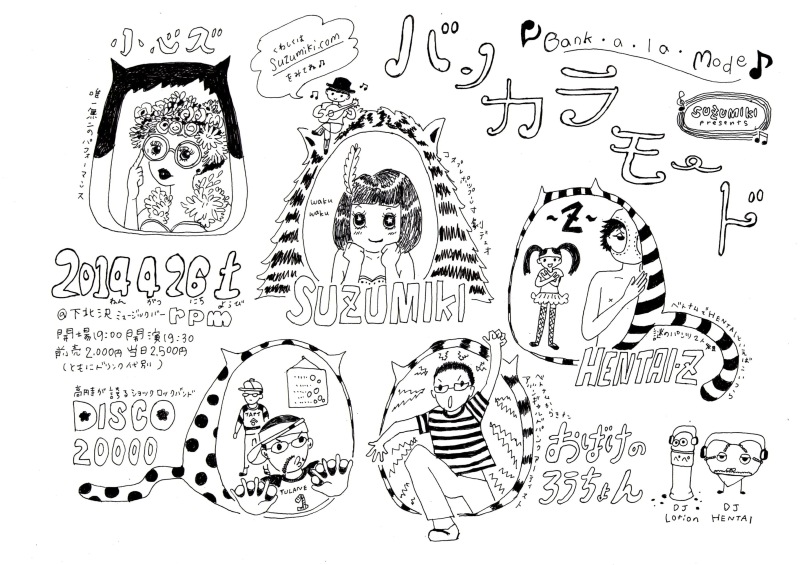 小心ズ
唯一無二のパフォーマンス
くわしくは
Suzumiki.com
をみてね♫
バンカラモード
Bank・a・la・Mode
SUZUMIKI
presents
waku
waku
SUZUMIKI
~Z~
HENTAI-Z
2014 4 26 土
ねん がつ にち ようび
@下北沢 ミュージックバー rpm
開場19:00 開演19:30
前売2,000円 当日2,500円
(ともにドリンク代別)
高円寺が誇るショックロックバンド
DISCO
20000
TAFT
TULANE
1
おばけの
ろうちょん
ペペ
DJ
Lotion
DJ
HENTAI